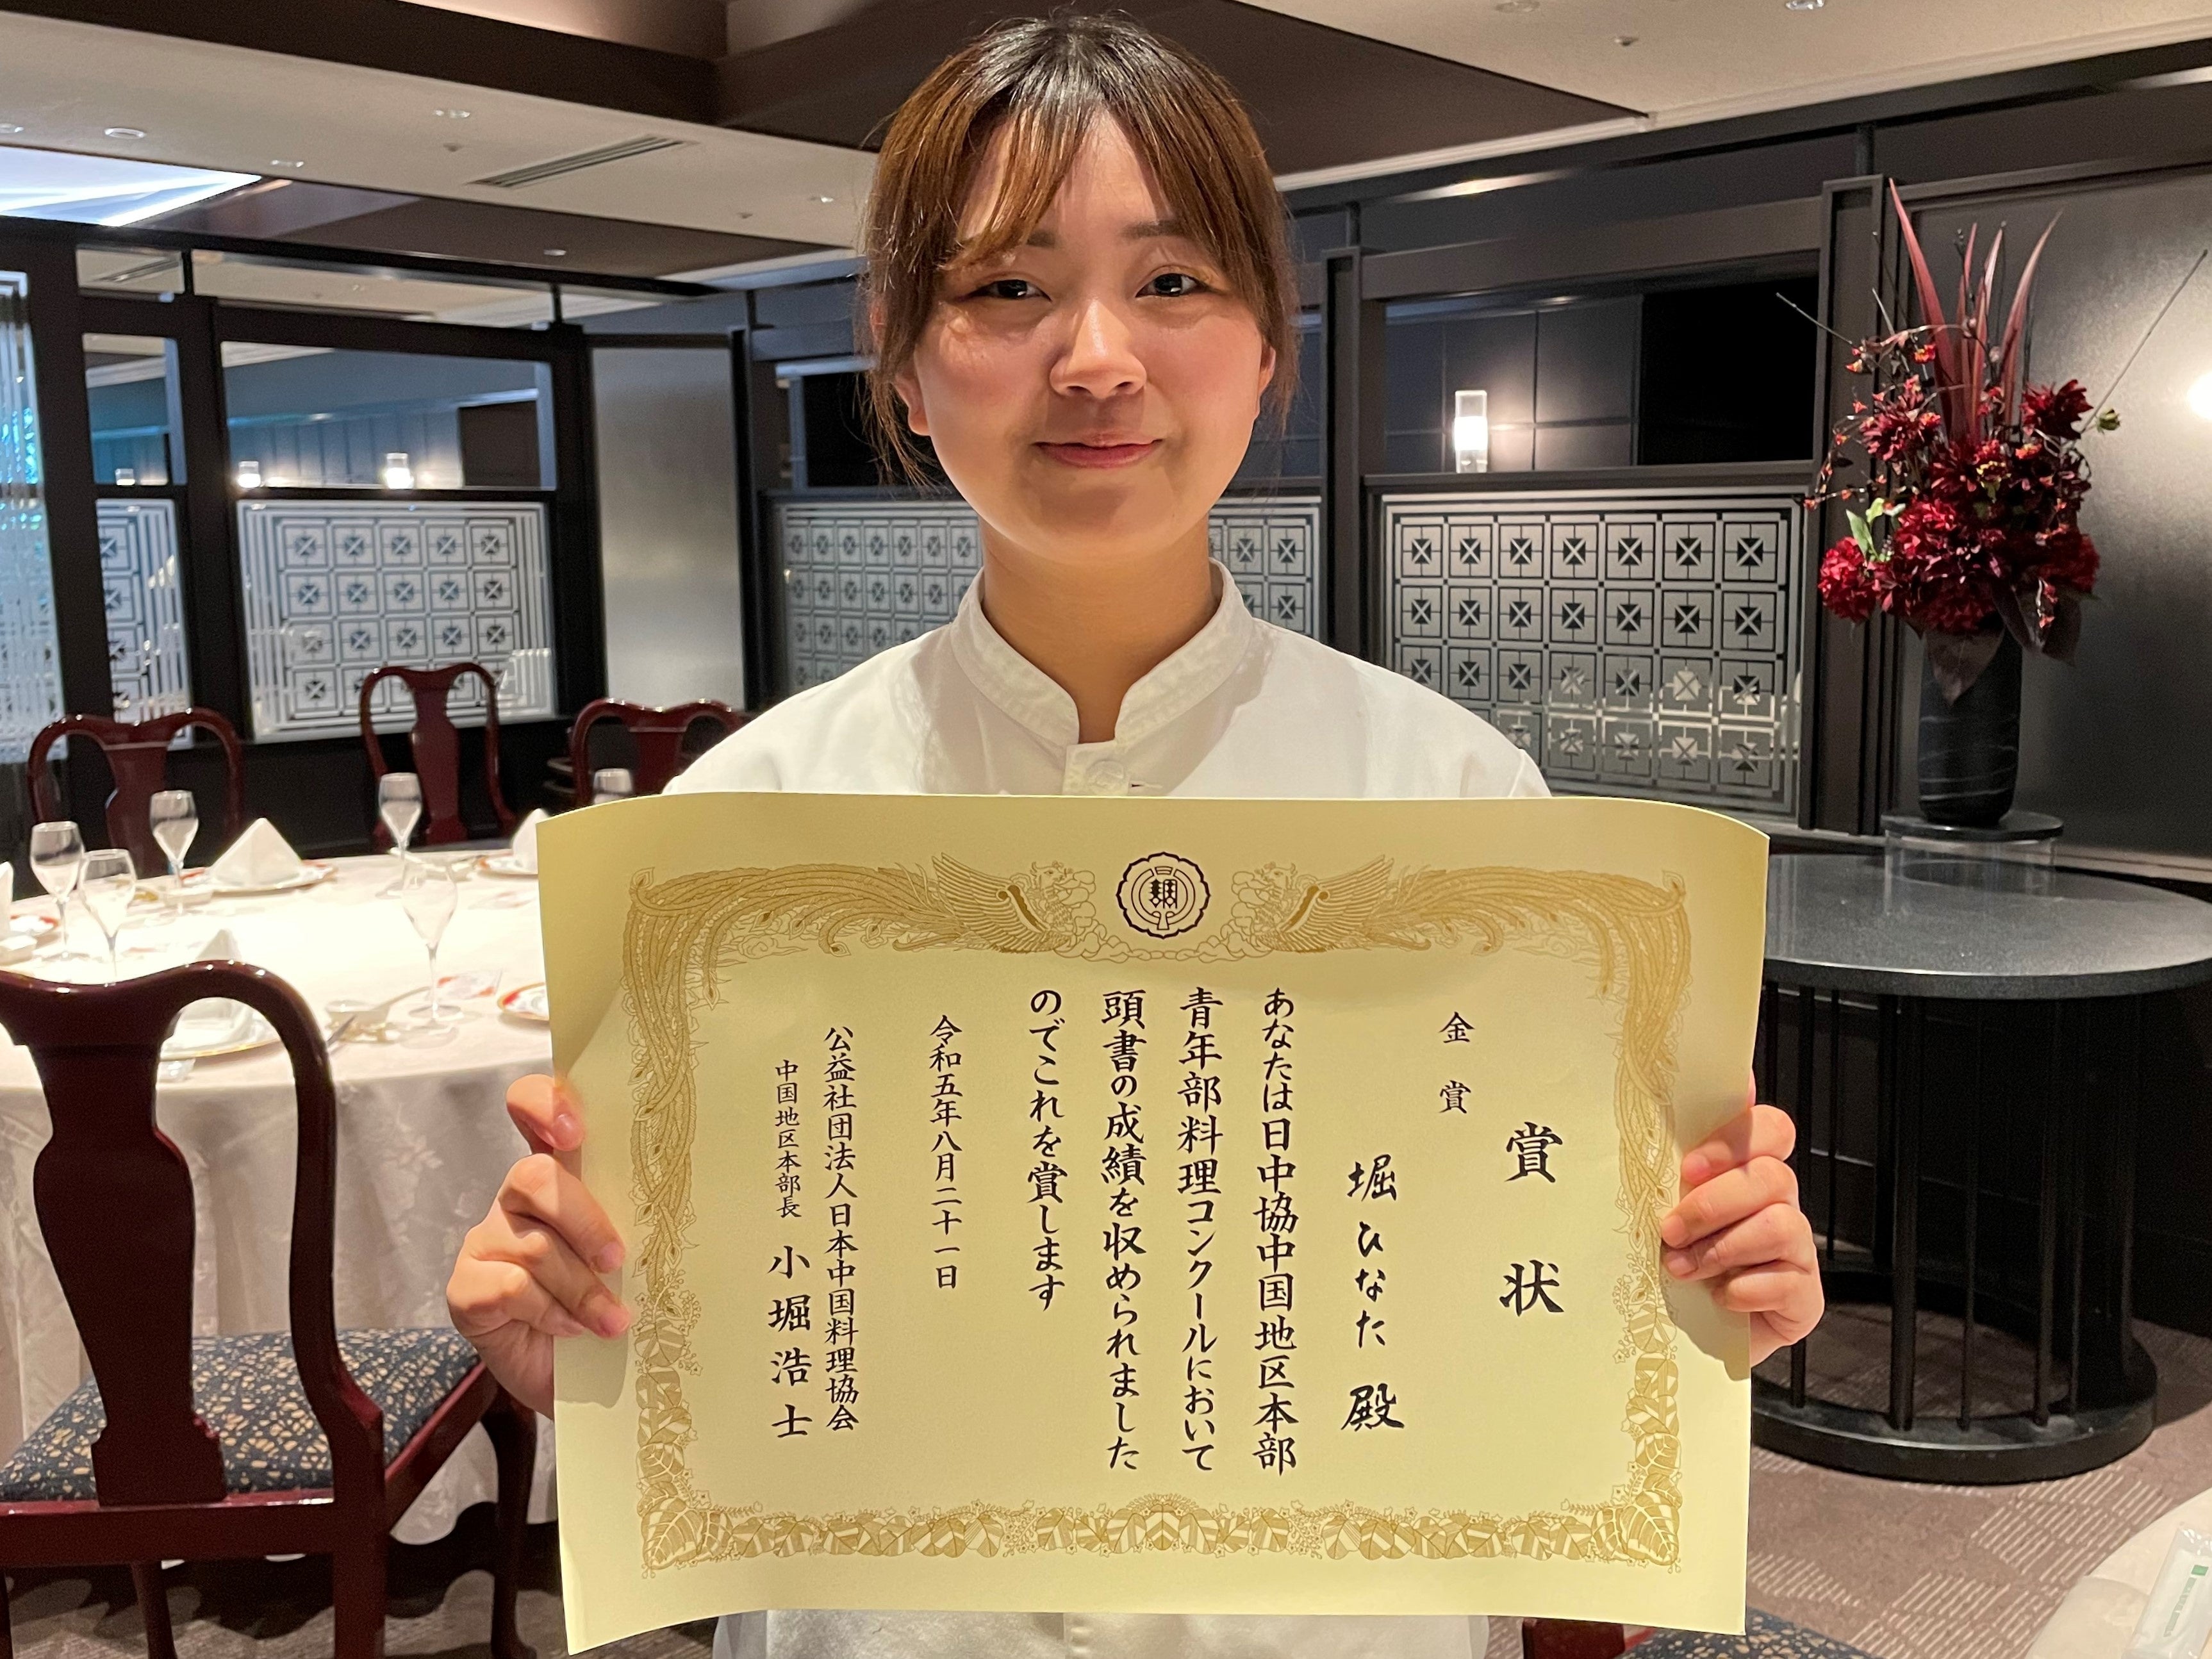 賞状
金賞
堀ひなた殿
あなたは日中協中国地区本部
青年部料理コンクールにおいて
頭書の成績を収められました
のでこれを賞します
令和五年八月二十一日
公益社団法人日本中国料理協会
中国地区本部長 小堀浩士